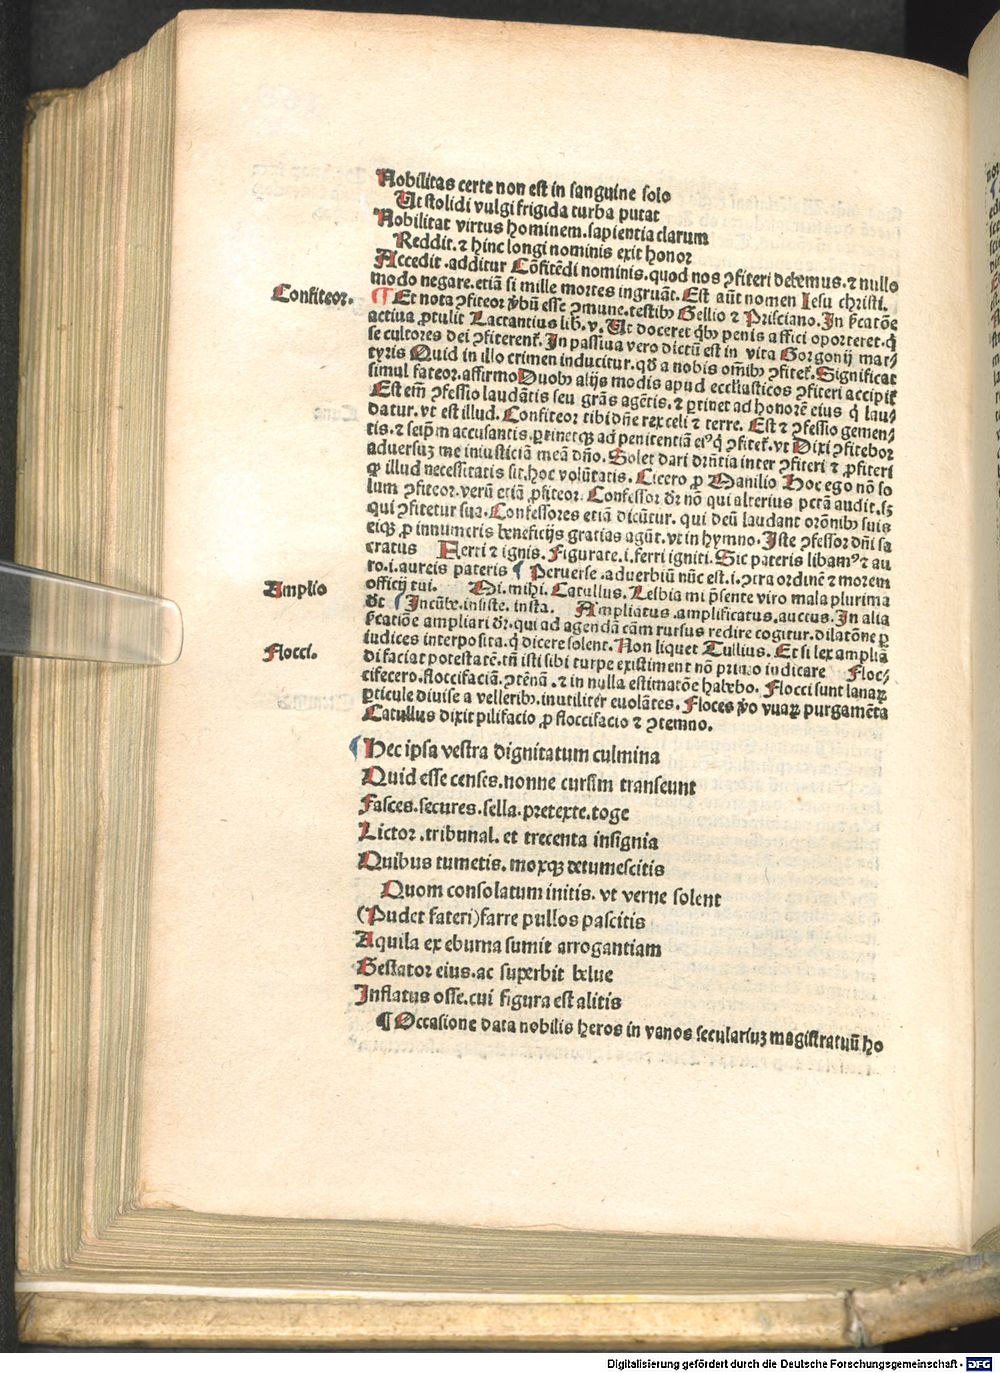 Nobilitas certe non est in sanguine solo
Ut stolidi vulgi frigida turba putat
Nobilitat virtus hominem. sapientia clarum
Reddit. ⁊ hinc longi nominis exit honor
Accedit. additur Cōfitēdi nominis. quod nos ꝯfiteri debemus. ⁊ nullo
modo negare. etiā si mille mortes ingruāt. Est aūt nomen Iesu christi.
Confiteor.
¶ Et nota ꝯfiteor v̄bū esse ꝯmune. testibꝰ Gellio ⁊ Prisciano. In
actiua ꝓtulit Lactantius lib. v. Ut doceret qͥbꝰ penis affici oporteret. q̄
se cultores dei ꝯfiterent̄. In passiua vero dictū est in vita Gorgonij mar⸗
tyris Quid in illo crimen inducitur. qd̄ a nobis oībꝰ ꝯfitet̄. Significat
simul fateor. affirmo Duobꝰ alijs modis apud ecclīasticos ꝯfiteri accipit̄
Est em̄ ꝯfessio laudātis seu grās agētis. ⁊ ꝑtinet ad honorē eius q̄ lau⸗
datur. vt est illud. Confiteor tibi dn̄e rex celi ⁊ terre. Est ⁊ ꝯfessio gemen⸗
tis. ⁊ seip̄m accusantis. ꝑtinetqꝫ ad penitentiā eiꝰ q̄ ꝯfitet̄. vt Dixi ꝯfitebor
aduersuꝫ me iniusticiā meā dn̄o. Solet dari dr̄ntia inter ꝯfiteri ⁊ ꝓfiteri
ꝙ illud necessitatis sit. hoc volūtatis. Cicero ꝓ Manilio Hoc ego nō so
lum ꝯfiteor. verū etiā ꝓfiteor. Confessor dr̄ nō qui alterius pctā audit. sꝫ
qui ꝯfitetur sua. Confessores etiā dicūtur. qui deū laudant orōnibꝰ suis
eiqꝫ ꝓ innumeris beneficijs gratias agūt. vt in hymno. Iste ꝯfessor dn̄i sa
cratus Ferri ⁊ ignis. Figurate. i. ferri igniti. Sic pateris libamꝰ ⁊ au
ro. i. aureis pateris ¶ Peruerse. aduerbiū nūc est. i. ꝯtra ordinē ⁊ morem
Amplio
officij tui. Mi. mihi. Catullus. Lesbia mi p̄sente viro mala plurima
dt̄ ¶ Incūbe. insiste. insta. Ampliatus. amplificatus. auctus. In alia
ampliari dr̄. qui ad agendā cām rursus redire cogitur. dilatōne ꝑ
iudices interposita. q̄ dicere solent. Non liquet Tullius. Et si lex ampliā
Flocci.
di faciat potestatē. tn̄ isti sibi turpe existiment nō primo iudicare Floc⸗
cifecero. floccifaciā. ꝯtēnā. ⁊ in nulla estimatōe habebo. Flocci sunt lanaꝝ
ꝑticule diuise a velleribꝰ. inutiliter euolātes. Floces v̄o vuaꝝ purgamēta
Catullus dixit pilifacio ꝓ floccifacio ⁊ ꝯtemno.
¶ Hec ipsa vestra dignitatum culmina
Quid esse censes. nonne cursim transeunt
Fasces. secures. sella. pretexte. toge
Lictor. tribunal. et trecenta insignia
Quibus tumetis. moxqꝫ detumescitis
Quom consolatum initis. vt verne solent
(Pudet fateri) farre pullos pascitis
Aquila ex eburna sumit arrogantiam
Gestator eius. ac superbit belue
Inflatus osse. cui figura est alitis
¶ Occasione data nobilis heros in vanos seculariuꝫ magistratuū ho
Digitalisierung gefördert durch die Deutsche Forschungsgemeinschaft - DFG